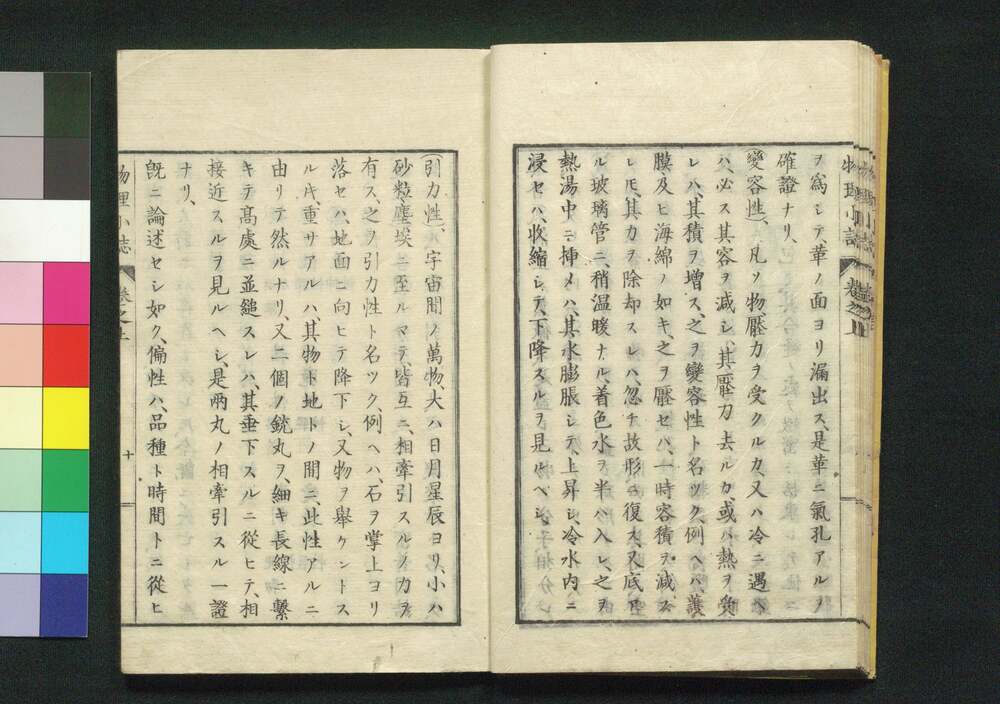 物理小誌 卷之上
ヲ窩シテ華ノ面ヨリ漏出ス、是華ニ氣孔アルノ
確證ナリ、
變容性、凡ソ物、壓力ヲ受クルカ、又ハ冷ニ遇ヘ
ハ、必ス其容ヲ減シ、其壓力去ルカ、或ハ熱ヲ受
レハ、其積ヲ增ス、之ヲ變容性ト名ツク、例ヘハ、護
膜及ヒ海綿ノ如キ、之ヲ壓セハ、一時容積ヲ減ス
レ𪜈、其力ヲ除却スレハ、忽チ故形ニ復ス、又底ア
ル玻璃管ニ、稍溫暖ナル、着色水ヲ半ハ入レ、之ヲ
熱湯中ニ挿メハ、其水膨脹シテ、上昇シ、冷水内ニ
浸セハ、收縮シテ、下降スルヲ見ルヘシ、
引力性、宇宙間ノ萬物、大ハ日月星辰ヨリ、小ハ
砂粒塵埃ニ至ルマテ、皆互ニ、相牽引スルノ力ヲ
有ス、之ヲ引力性ト名ツク、例ヘハ、石ヲ掌上ヨリ
落セハ、地面ニ向ヒテ降下シ、又物ヲ舉ケントス
ル𪜈、重サアルハ、其物ト地トノ間ニ此性アルニ
由リテ然ルナリ、又二個ノ銃丸ヲ、細キ長線ニ繫
キテ高處ニ並縋スレハ、其垂下スルニ從ヒテ、相
接近スルヲ見ルヘシ、是兩丸ノ相牽引スル一證
ナリ、
既ニ論述セシ如ク、偏性ハ、品種ト時間トニ從ヒ
物理小誌 卷之上 十